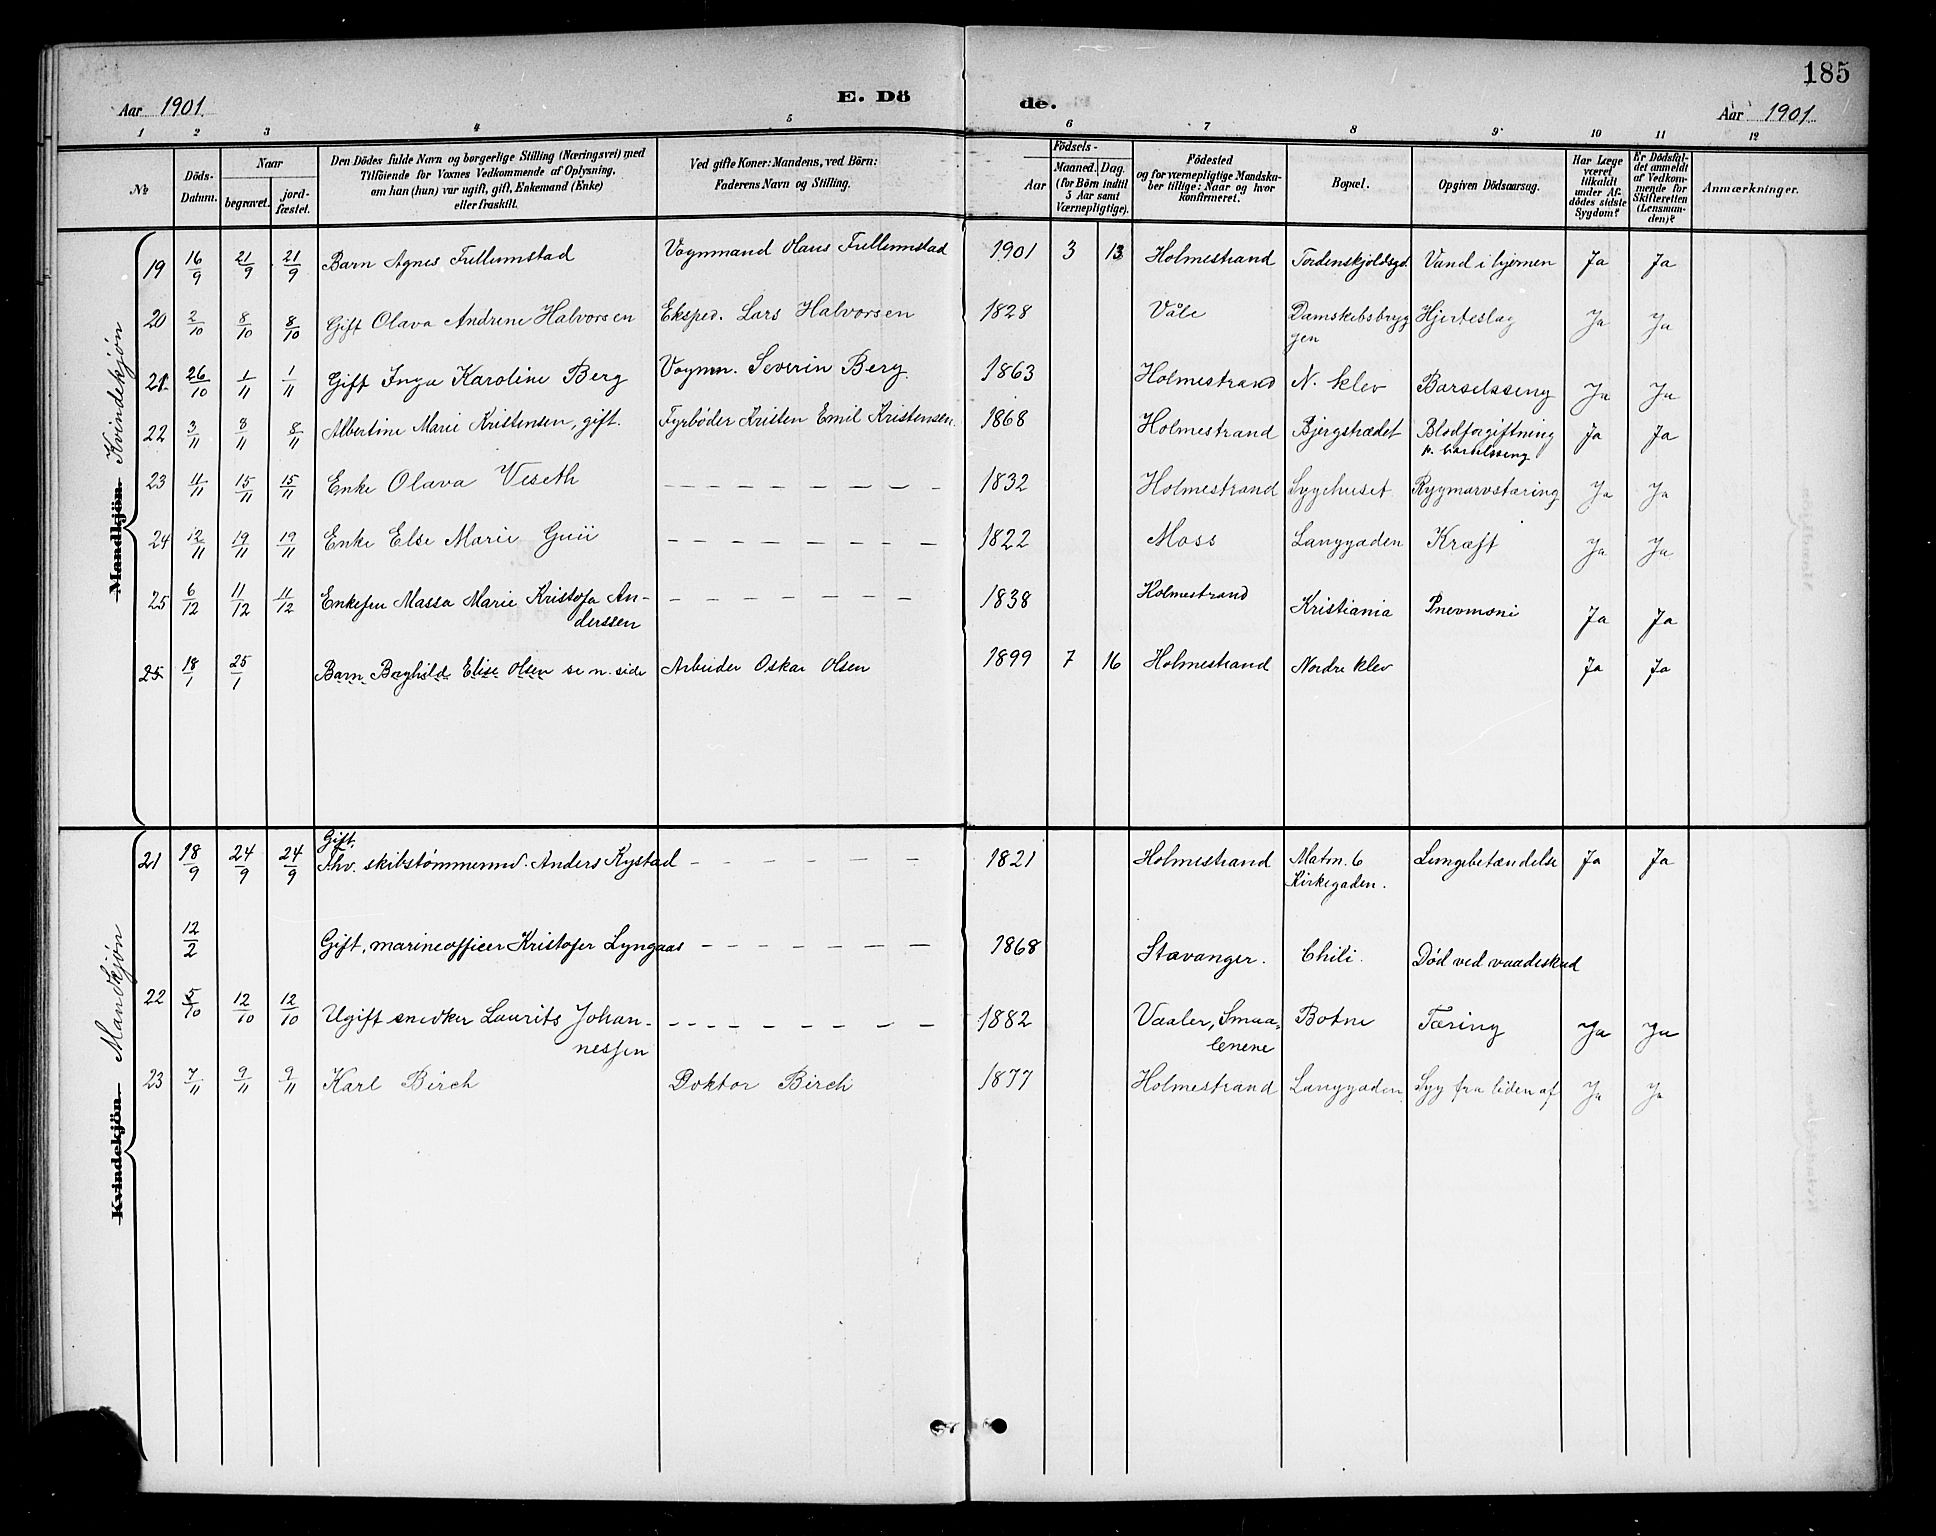 185
Aar 1901. E. Dö de. Aar 1901
1 2 3 4 5 6 7 8 9 10 11 12
No
Döds-Datum.
Naar
begravet.
jord-fæstet.
Den Dödes fulde Navn og borgerlige Stilling (Næringsvei) med
Tilföiende for Voxnes Vedkommende af Oplysning,
om han (hun) var ugift, gift, Enkemand (Enke)
eller fraskilt.
Ved gifte Koner: Mandens, ved Börn:
Faderens Navn og Stilling.
Födsels-
Aar
Maaned. Dag.
(for Börn indtil
5 Aar samt
Værnepligtige).
Födested
og for værnepligtige Mandska-
ber tillige: Naar og hvor
konfirmeret.
Bopæl.
Opgiven Dödsaarsag.
Har Læge
været
tilkaldt
under Af-
dödes sidste
Sygdom?
Er Dödsfal-
det anmeldt
af Vedkom-
mende for
Skifteretten
(Lensman-
den)?
Anmærkninger.
Mandkjön Kvindekjøn
19 16/9 21/9 21/9 Barn Agnes Fullumstad Vognmand Olaus Fullumstad 1901 3 13 Holmestrand Tordenskjoldsgd. Vand i hjernen Ja Ja
20 2/10 8/10 8/10 Gift Olava Andrine Halvorsen Eksped. Lars Halvorsen 1828 Våle Damskibsbryg Hjerteslag Ja Ja
gen
21 26/10 1/11 1/11 Gift Inga Karoline Berg Vognm. Severin Berg. 1863 Holmestrand N. klev Barselsseng Ja Ja
22 3/11 8/11 8/11 Albertine Marie Kristensen, gift. Fyrbøder Kristen Emil Kristensen. 1868 Holmestrand Bjergstrædet Blodforgiftning Ja Ja
p. barselsseng
23 11/11 15/11 15/11 Enke Olava Veseth - - - - - - - - 1832 Holmestrand Sygehuset Rygmarvstæring Ja Ja
24 12/11 19/11 19/11 Enke Else Marie - - - - - - - - 1822 Moss Langgaden Kræft Ja Ja
25 6/12 11/12 11/12 Enkefru Massa Marie Kristofa An- - - - - - - - - 1838 Holmestrand Kristiania Pnevmoni Ja Ja
derssen
25 18/1 25/1 Barn Baghild Elise Olsen se n. side Arbeider Oskar Olsen 1899 7 16 Holmestrand Nordre klev Ja Ja
Kvindekjön Mandkjøn
Gift.
21 18/9 24/9 24/9 Fhv. skibstømmermd. Anders Rystad - - - - - - - 1821 Holmestrand Matrn. 6 Lungebetændelse Ja Ja
Kirkegaden.
12/2 Gift, marineofficer Kristofer Lyngaas - - - - - - - 1868 Stavanger. Chili. Død ved vaadeskud
22 5/10 12/10 12/10 Ugift snedker Laurits Johan- - - - - - - - - 1882 Vaaler, Smaa- Botne Tæring Ja Ja
nessen lenene
23 7/11 9/11 9/11 Karl Birch Doktor Birch 1877 Holmestrand Langgaden. Syg fra liden af Ja Ja